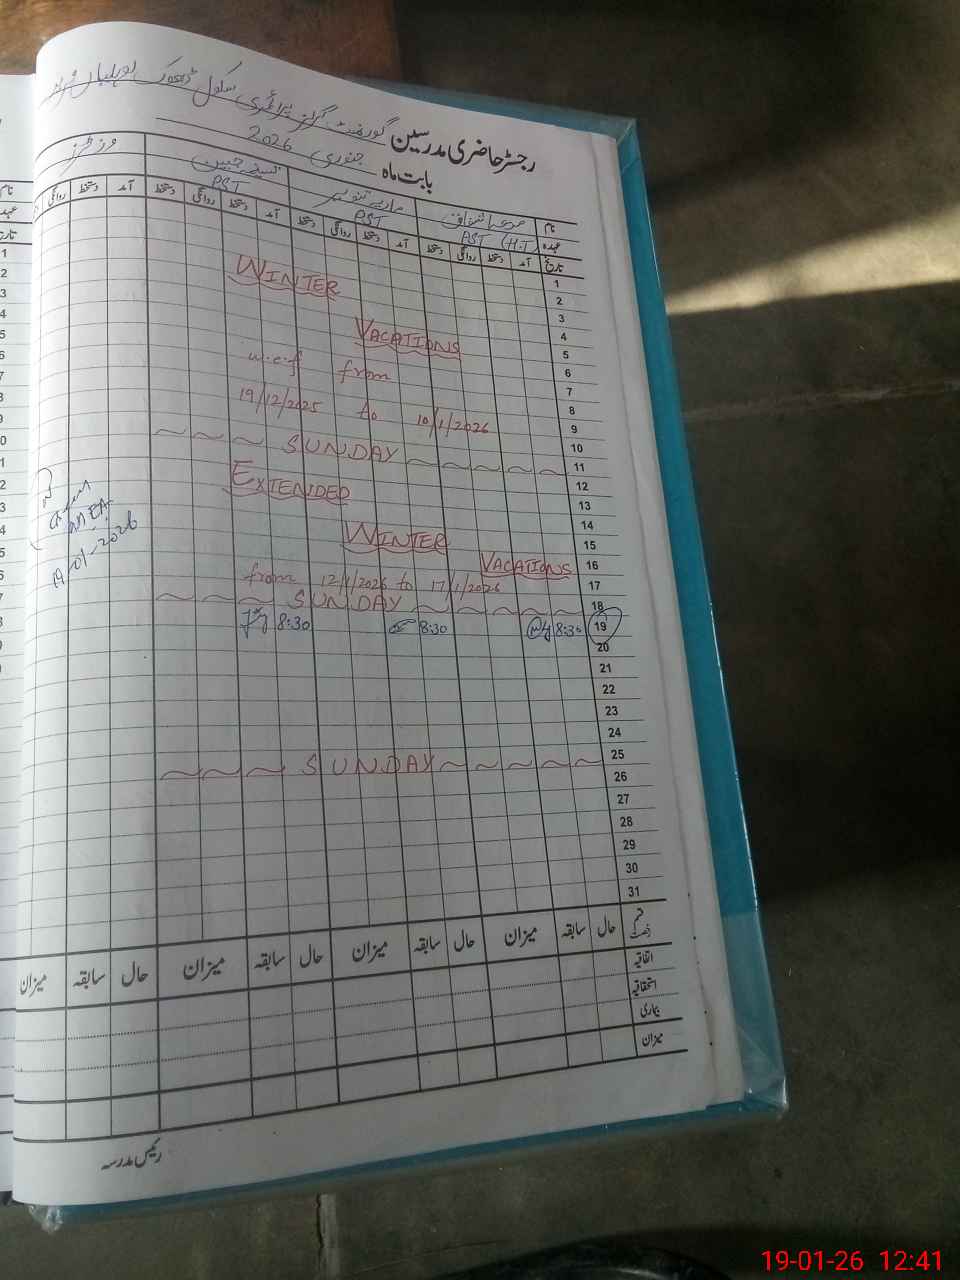 رجسٹر حاضری مدرسین گورنمنٹ گرلز پرائمری سکول ڈھوک
بابت ماہ جنوری 2026
نام
عہدہ PST (H.T) PST PST
تاریخ آمد دستخط روانگی دستخط آمد دستخط روانگی دستخط آمد دستخط روانگی دستخط آمد دستخط روانگی
1
WINTER
2
3
VACATIONS
4
5
w.e.f from
6
7
19/12/2025 to 10/1/2026
8
9
10
SUNDAY
11
EXTENDED
12
13
14
WINTER
15
VACATIONS
16
from 12/1/2026 to 17/1/2026
17
SUNDAY
18
8:30 8:30 8:30
19
20
21
22
23
24
SUNDAY
25
26
27
28
29
30
31
19-01-2026
قسم رخصت حال سابقہ میزان حال سابقہ میزان حال سابقہ میزان حال سابقہ میزان
اتفاقیہ
استحقاقیہ
بیماری
میزان
رئیس مدرسہ
19-01-26 12:41